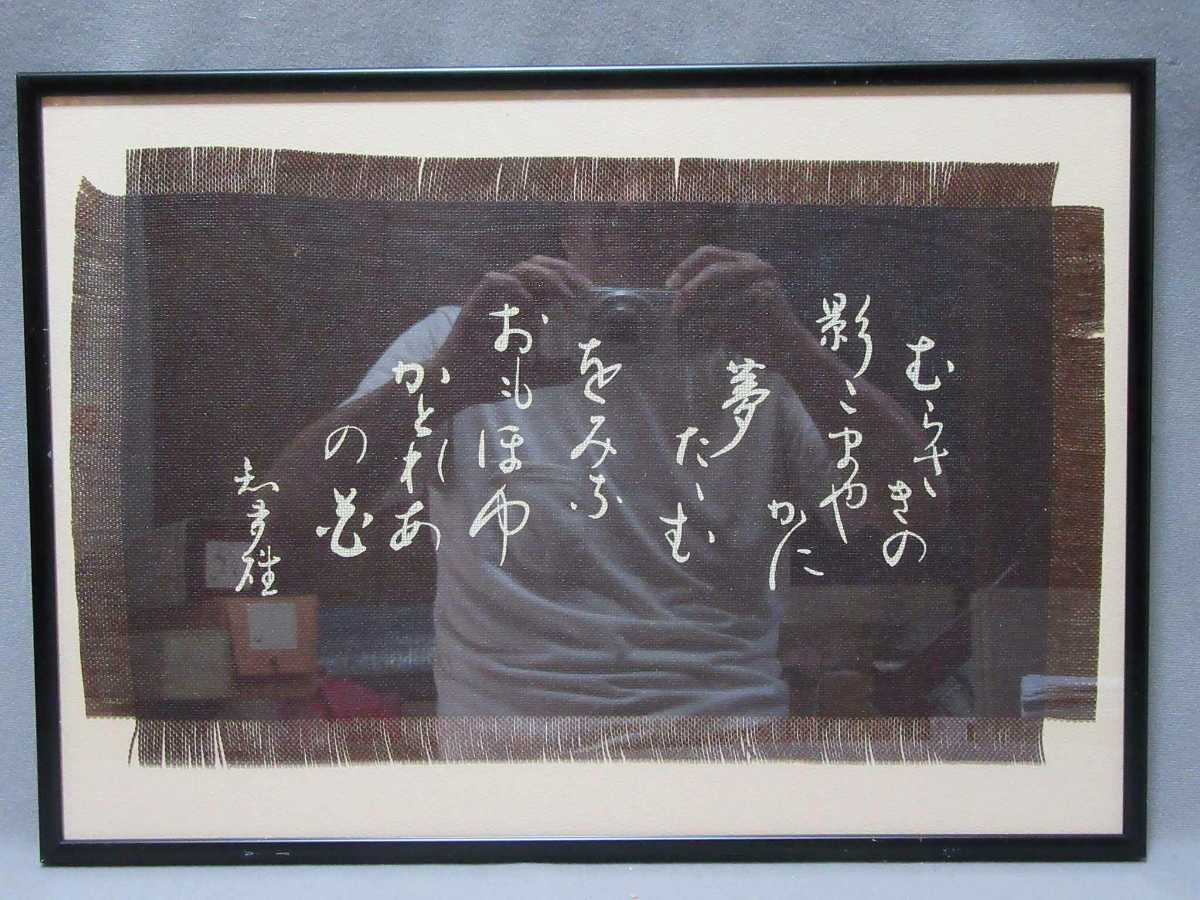 むらさきの
影こまや
かに
夢
たゝむ
をみな
おもほゆ
かとれあ
の花